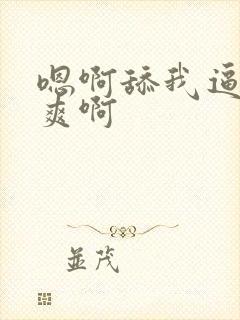 嗯啊舔我逼
爽啊
並茂